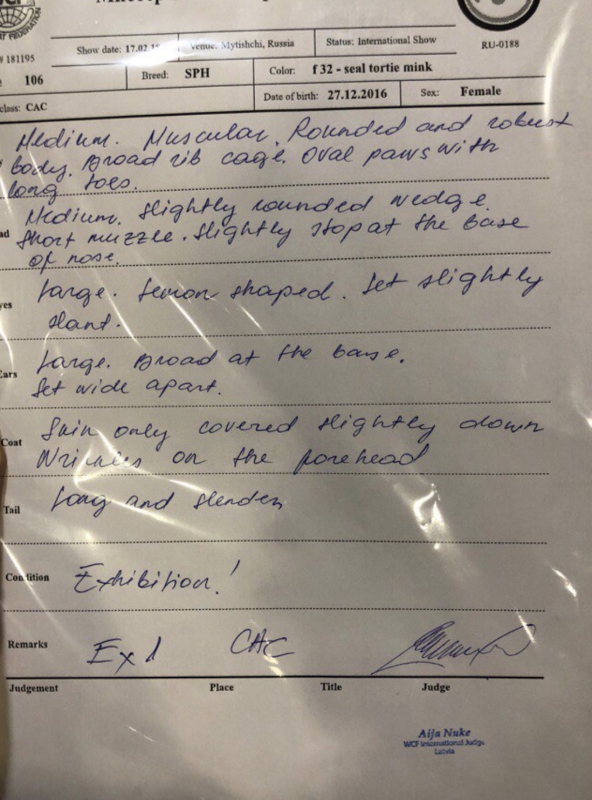 T FEDERATION
# 181195
Show date: 17.02.
Venue: Mytishchi, Russia
Status: International Show
RU-0188
106
Breed: SPH
Color: f 32 - seal tortie mink
class: CAC
Date of birth: 27.12.2016
Sex: Female
Medium. Muscular. Rounded and robust
body. Broad rib cage. Oval paws with
long toes.
ad
Medium. Slightly rounded wedge.
Short muzzle. Slightly stop at the base
of nose.
yes
Large. Lemon shaped. Set slightly
slant.
Ears
Large. Broad at the base.
Set wide apart.
Coat
Skin only covered slightly down
Wrinkles on the forehead
Tail
Long and slender
Condition
Exhibition!
Remarks
Ex 1 CAC
Judgement Place Title Judge
Aija Nuke
WCF International Judge
Latvia